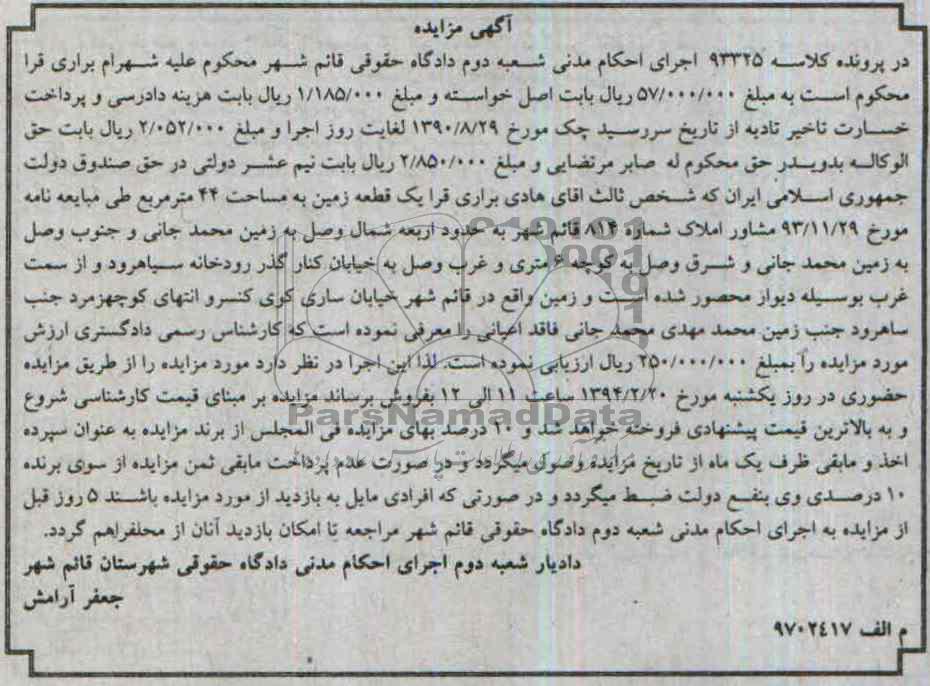 آگهی مزایده
در پرونده کلاسه ۹۳۳۲۵ اجرای احکام مدنی شعبه دوم دادگاه حقوقی قائم شهر محکوم علیه شهرام براری قرا
محکوم است به مبلغ ۵۷/۰۰۰/۰۰۰ ریال بابت اصل خواسته و مبلغ ۱/۱۸۵/۰۰۰ ریال بابت هزینه دادرسی و پرداخت
خسارت تاخیر تادیه از تاریخ سررسید چک مورخ ۱۳۹۰/۸/۲۹ لغایت روز اجرا و مبلغ ۲/۰۵۲/۰۰۰ ریال بابت حق
الوکاله بدویدر حق محکوم له صابر مرتضایی و مبلغ ۲/۸۵۰/۰۰۰ ریال بابت نیم عشر دولتی در حق صندوق دولت
جمهوری اسلامی ایران که شخص ثالث اقای هادی براری قرا یک قطعه زمین به مساحت ۴۴ مترمربع طی مبایعه نامه
مورخ ۹۳/۱۱/۲۹ مشاور املاک شماره ۸۱۴ قائم شهر به حدود اربعه شمال وصل به زمین محمد جانی و جنوب وصل
به زمین محمد جانی و شرق وصل به کوچه ۶ متری و غرب وصل به خیابان کنار گذر رودخانه سیاهرود و از سمت
غرب بوسیله دیواز محصور شده است و زمین واقع در قائم شهر خیابان ساری کوی کنسرو انتهای کوچهزمرد جنب
ساهرود جنب زمین محمد مهدی محمد جانی فاقد اعیانی را معرفی نموده است که کارشناس رسمی دادگستری ارزش
مورد مزایده را بمبلغ ۲۵۰/۰۰۰/۰۰۰ ریال ارزیابی نموده است. لذا این اجرا در نظر دارد مورد مزایده را از طریق مزایده
حضوری در روز یکشنبه مورخ ۱۳۹۴/۲/۲۰ ساعت ۱۱ الی ۱۲ بفروش برساند مزایده بر مبنای قیمت کارشناسی شروع
و به بالاترین قیمت پیشنهادی فروخته خواهد شد و ۱۰ درصد بهای مزایده فی المجلس از برند مزایده به عنوان سپرده
اخذ و مابقی ظرف یک ماه از تاریخ مزایده وصول میگردد و در صورت عدم پرداخت مابقی ثمن مزایده از سوی برنده
۱۰ درصدی وی بنفع دولت ضبط میگردد و در صورتی که افرادی مایل به بازدید از مورد مزایده باشند ۵ روز قبل
از مزایده به اجرای احکام مدنی شعبه دوم دادگاه حقوقی قائم شهر مراجعه تا امکان بازدید آنان از محلفراهم گردد.
دادیار شعبه دوم اجرای احکام مدنی دادگاه حقوقی شهرستان قائم شهر
جعفر آرامش
م الف ۹۷۰۲۴۱۷
ParsNamadData